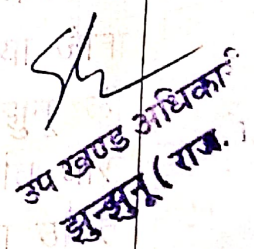 उप खण्ड अधिकारी
झुन्झुनू (राज.